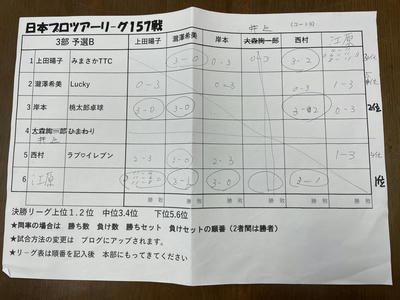 井上 (コート5)
日本プロツアーリーグ157戦
3部 予選B 上田陽子 瀧澤希美 岸本 大森絢一郎 西村 江原
1 上田陽子 みまさかTTC 3-0 3-2
2 瀧澤希美 Lucky 0-3 0-3 0-3 1-3
3 岸本 桃太郎卓球 3-0 3-0 0-3 2位
4 大森絢一郎 ひまわり
井上
5 西村 ラブオレブン 2-3 0-3 2-3 1-3
6 江原 3-1 3-0 3-1 1位
勝 敗 勝 敗 勝 敗 勝 敗 勝 敗 勝 敗
決勝リーグ上位1.2位 中位3.4位 下位5.6位
★同率の場合は 勝ち数 負け数 勝ちセット 負けセットの順番(2者間は勝者)
★試合方法の変更は ブログにアップされます。
★リーグ表は順番を記入後 本部にもってきてください